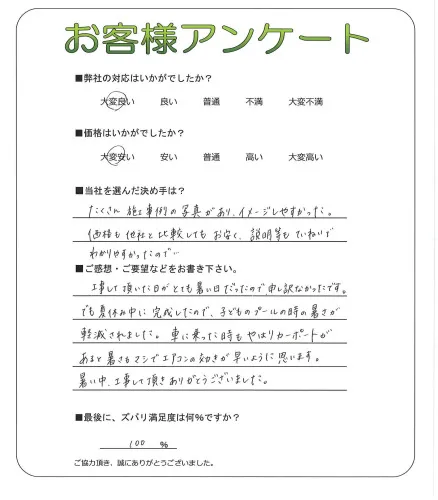 お客様アンケート
■弊社の対応はいかがでしたか?
大変良い 良い 普通 不満 大変不満
■価格はいかがでしたか?
大変安い 安い 普通 高い 大変高い
■当社を選んだ決め手は?
たくさん施工事例の写真があり、イメージしやすかった。
価格も他社と比較してもお安く、説明等もていねいで
わかりやすかったので…
■ご感想・ご要望などをお書き下さい。
工事して頂いた日がとても暑い日だったので申し訳なかったです。
でも夏休み中に完成したので、子どものプールの時の暑さが
軽減されました。車に乗った時もやはりカーポートが
あると暑さもマシでエアコンの効きが早いように思います。
暑い中、工事して頂きありがとうございました。
■最後に、ズバリ満足度は何%ですか?
100 %
ご協力頂き、誠にありがとうございました。